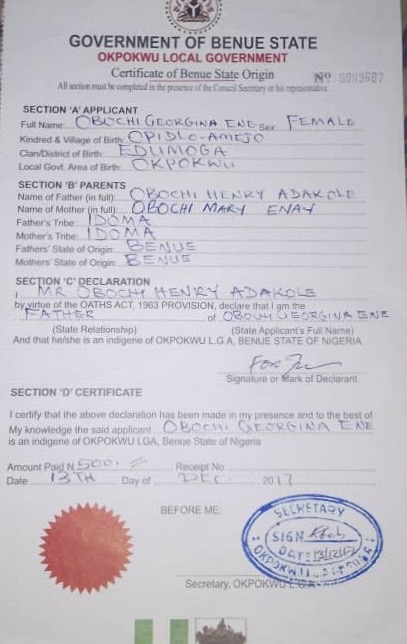 GOVERNMENT OF BENUE STATE
OKPOKWU LOCAL GOVERNMENT
Certificate of Benue State Origin
No 0003602
All section must be completed in the presence of the Council Secretary or his representative
SECTION 'A' APPLICANT
Full Name: OBOCHI GEORGINA ENE Sex FEMALE
Kindred & Village of Birth OPIDLO-AMEJO
Clan/District of Birth EDUMOGA
Local Govt. Area of Birth OKPOKWU
SECTION 'B' PARENTS
Name of Father (in full): OBOCHI HENRY ADAKOLE
Name of Mother (in full): OBOCHI MARY ENAY
Father's Tribe: IDOMA
Mother's Tribe: IDOMA
Fathers' State of Origin: BENUE
Mothers' State of Origin: BENUE
SECTION 'C' DECLARATION
I MR OBOCHI HENRY ADAKOLE
by virtue of the OATHS ACT, 1963 PROVISION, declare that I am the
FATHER of OBOCHI GEORGINA ENE
(State Relationship) (State Applicant's Full Name)
And that he/she is an indigene of OKPOKWU L.G.A, BENUE STATE OF NIGERIA
For
Signature or Mark of Declarant
SECTION 'D' CERTIFICATE
I certify that the above declaration has been made in my presence and to the best of
My knowledge the said applicant OBOCHI GEORGINA ENE
is an indigene of OKPOKWU LGA, Benue State of Nigeria
Amount Paid N 500.= Receipt No
Date 13TH Day of DEC. 2017
BEFORE ME:
SECRETARY
SIGN
DATE 13/12/17
OKPOKWU
Secretary, OKPOKWU L.G.A